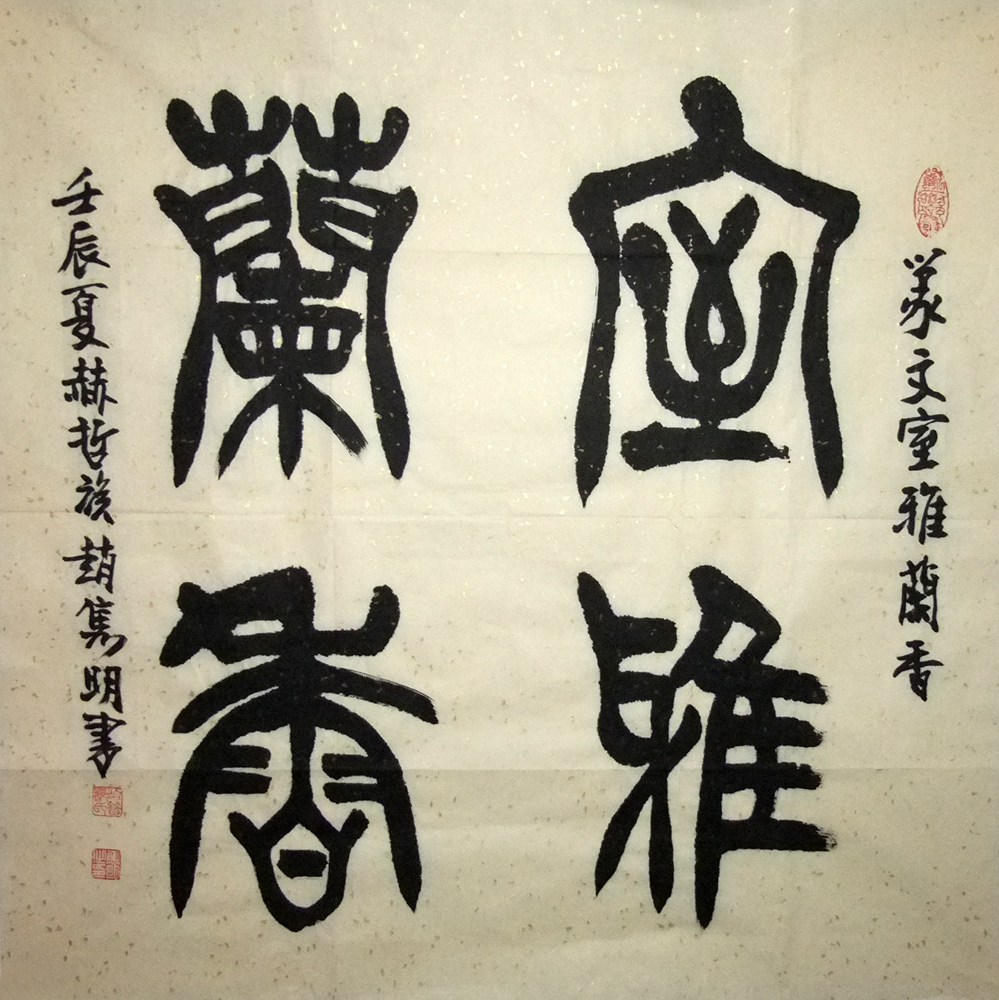 篆文室雅蘭香
室雅
蘭香
壬辰夏赫哲族趙隽明書